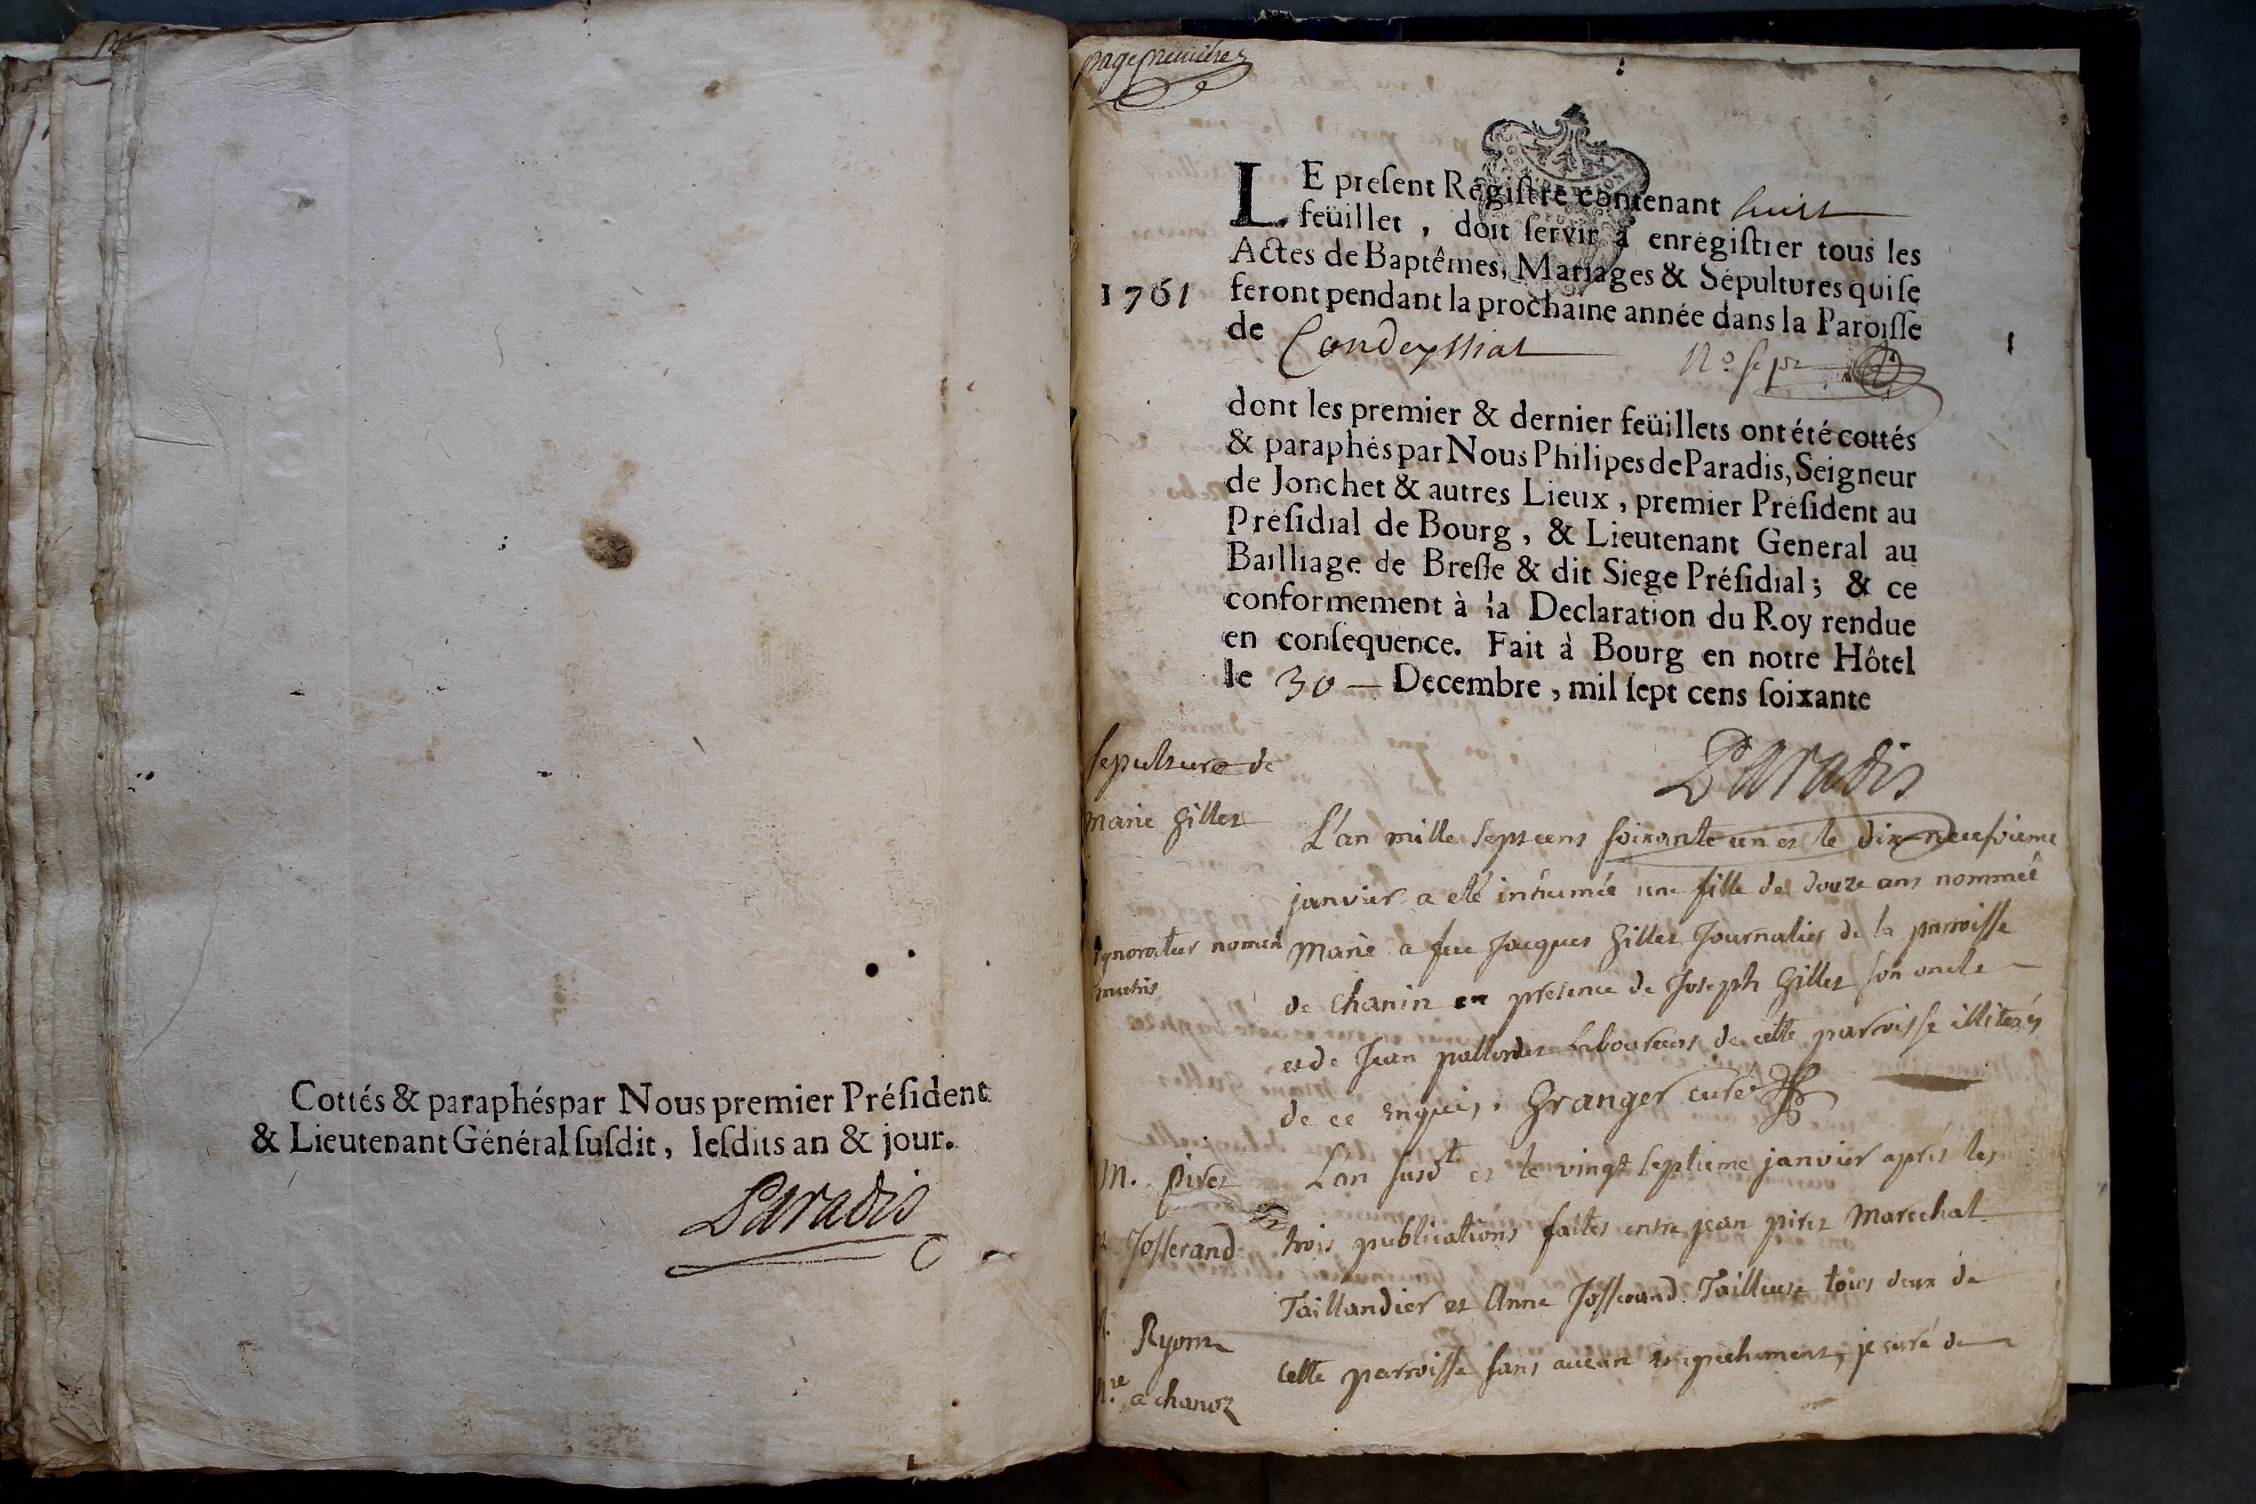 Cottés & paraphés par Nous premier Préſident
& Lieutenant Général ſuſdit, leſdits an & jour.
Paradis
page premiere
LE preſent Régiſtre contenant huit
feüillet, doit ſervir à enregiſtrer tous les
Actes de Baptêmes, Mariages & Sépultures qui ſe
1761
feront pendant la prochaine année dans la Paroiſſe
de Condeyssiat
1
dont les premier & dernier feüillets ont été cottés
& paraphés par Nous Philipes de Paradis, Seigneur
de Jonchet & autres Lieux, premier Préſident au
Préſidial de Bourg, & Lieutenant General au
Bailliage de Breſſe & dit Siege Préſidial; & ce
conformement à la Declaration du Roy rendue
en conſequence. Fait à Bourg en notre Hôtel
le 30 — Decembre, mil ſept cens ſoixante
Paradis
sepulture de
marie Gillet
L'an mille sept cens soixante un et le dix neufvieme
janvier a eté inhumée une fille de douze ans nommée
ignoratur nomen
matris
Marie a feu Jacques Gillet Journalier de la parroisse
de Chanin en presence de Joseph Gillet son oncle
et de Jean laboureurs de cette parroisse illiterés
de ce enquis. Granger curé
M. Piret
Josserand
L'an susdt et le vingt septieme janvier après les
trois publications faites entre jean piret Marechal
Taillandier et Anne Josserand Tailleuse tous deux de
Ryom
a chanoz
cette parroisse sans aucun empechement, je curé de